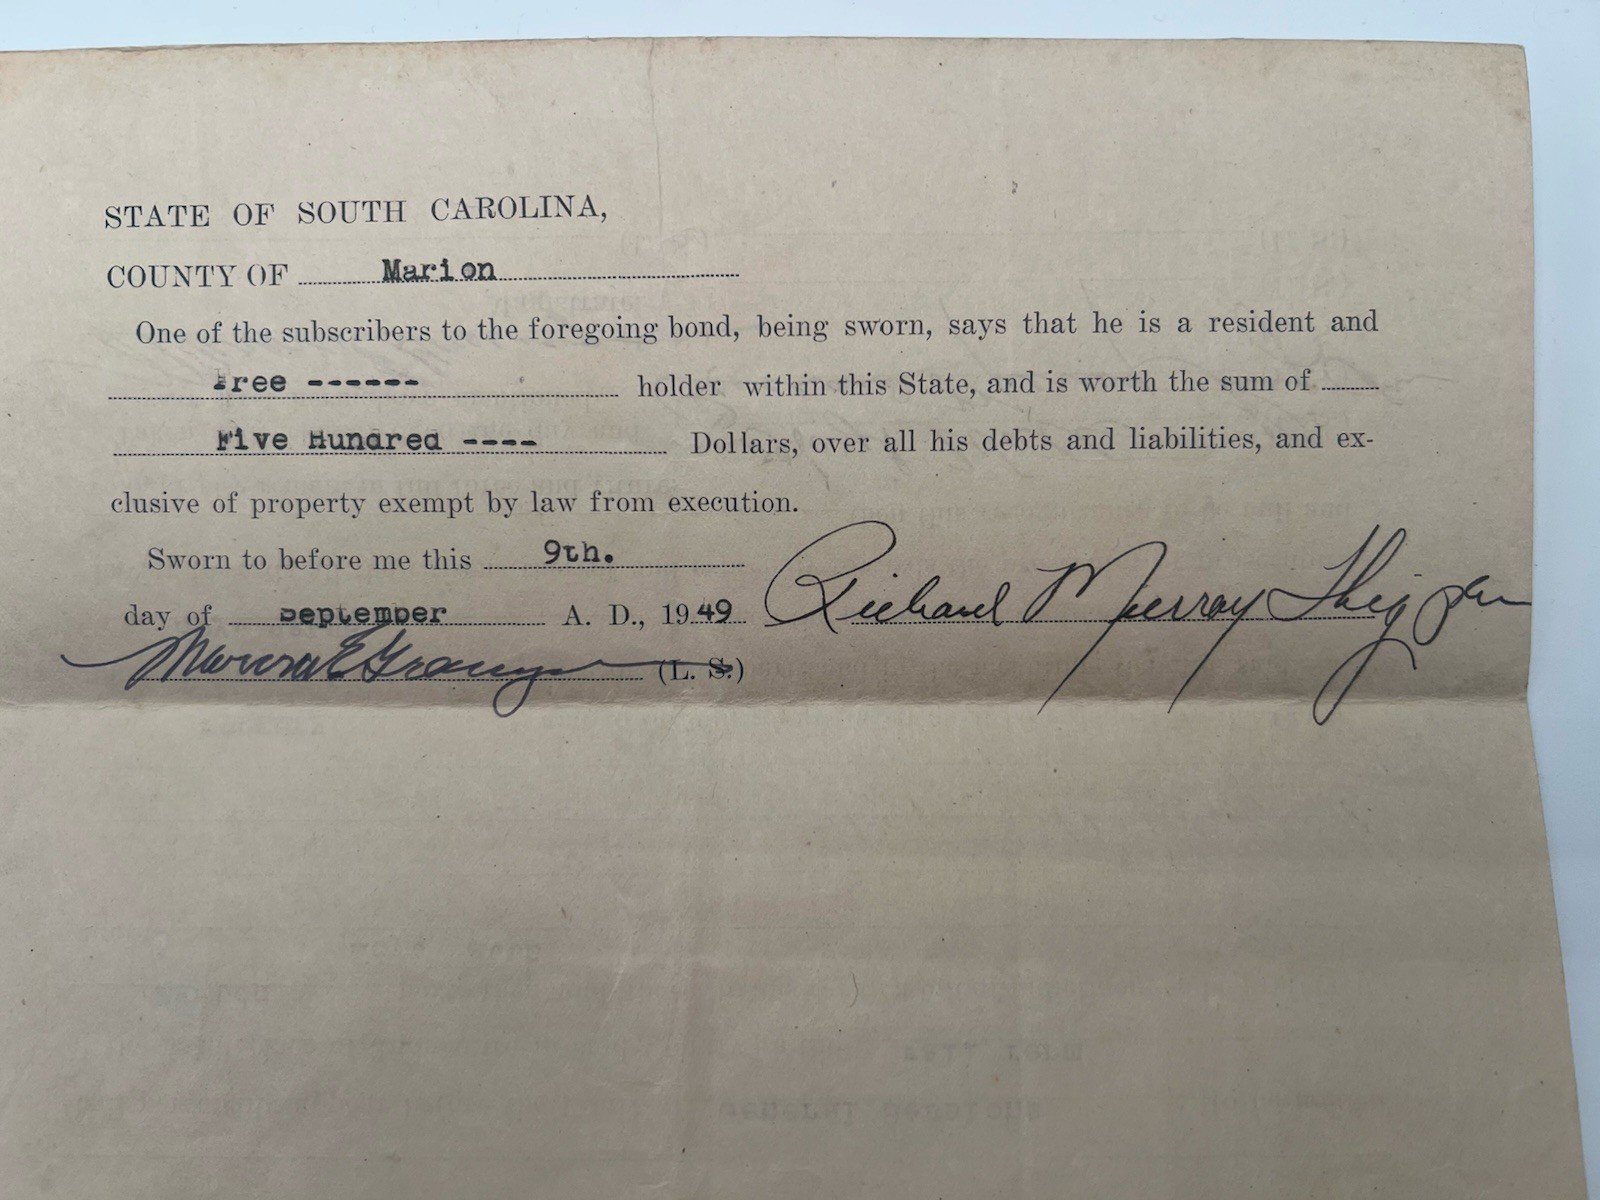 STATE OF SOUTH CAROLINA,
COUNTY OF Marion
One of the subscribers to the foregoing bond, being sworn, says that he is a resident and
Free ------ holder within this State, and is worth the sum of
Five Hundred ---- Dollars, over all his debts and liabilities, and ex-
clusive of property exempt by law from execution.
Sworn to before me this 9th.
day of September A. D., 1949 Richard Murray Thigpen
(L. S.)